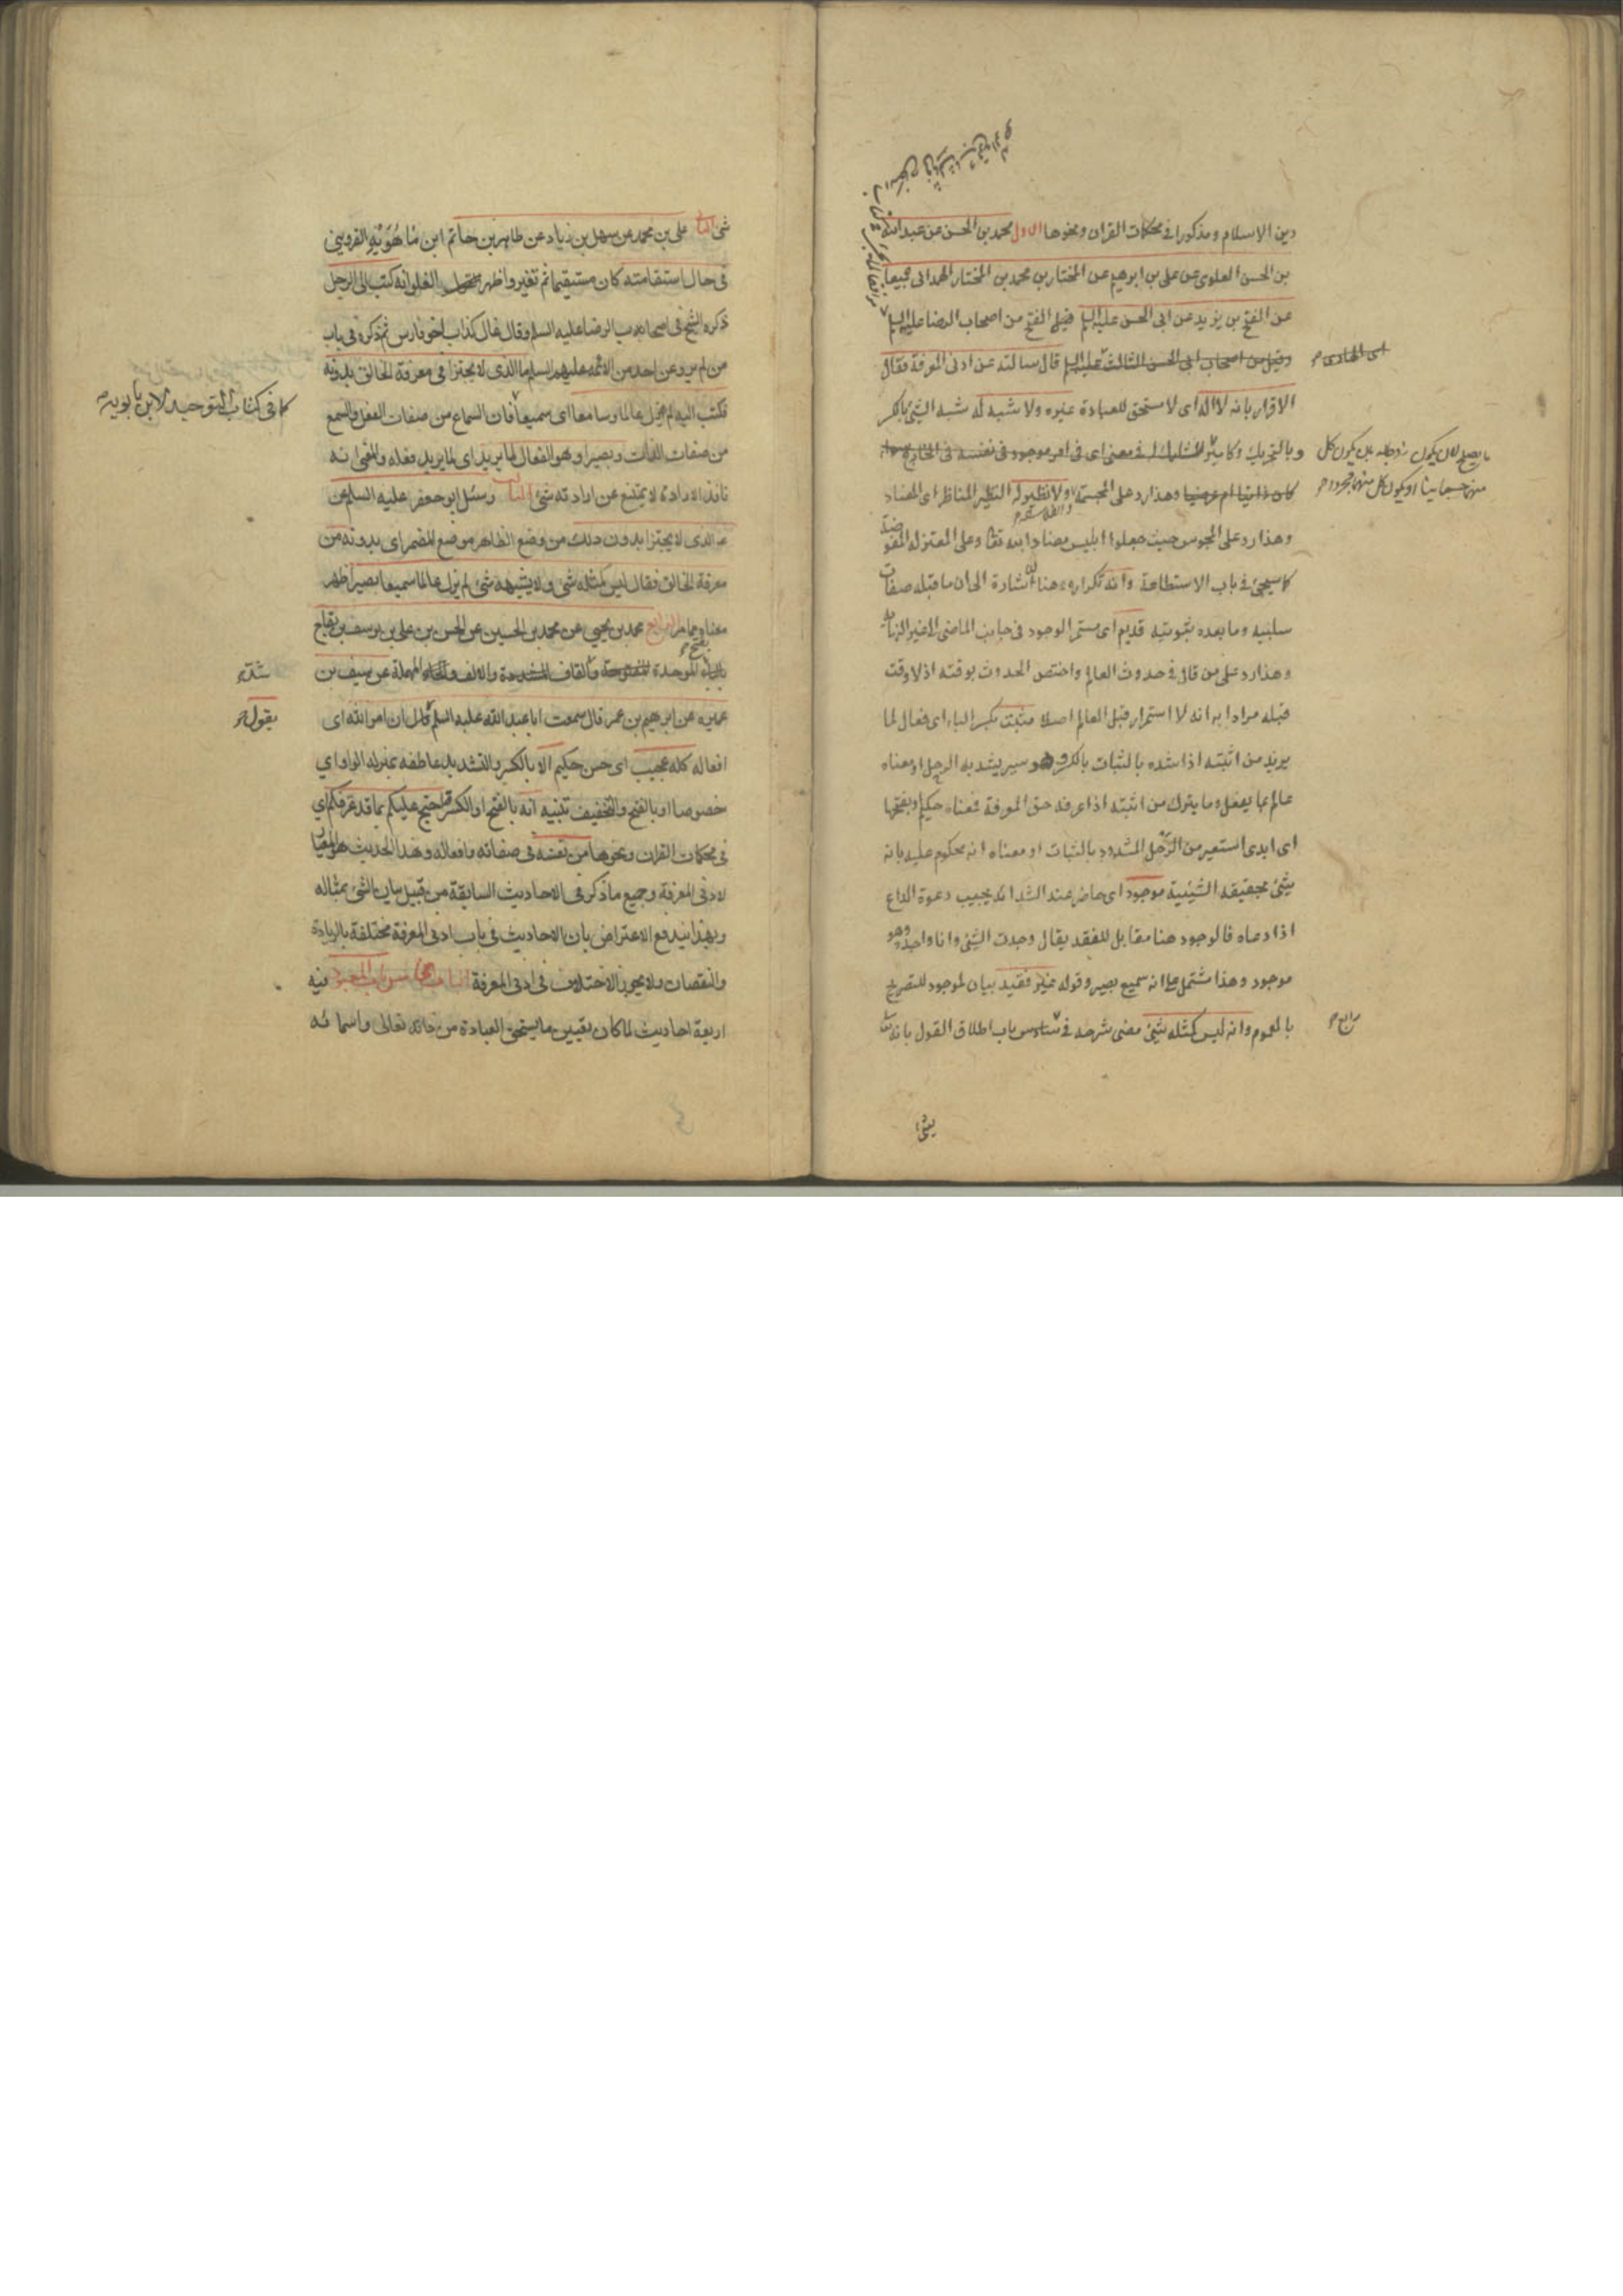 دين الاسلام ومذكورا فى محكمات القران ونحوها الاول محمد بن الحسن عن عبد الله
بن الحسن العلوى عن على بن ابرهيم عن المختار بن محمد بن المختار الهمدانى جميعا
عن الفتح بن يزيد عن ابى الحسن عليه السلم قيل الفتح من اصحاب الرضا عليه السلم
وقيل من اصحاب ابى الحسن الثالث عليه السلم قال سالته عن ادنى المعرفة فقال
اى الهادى
الاقرار بانه لا اله اى لا مستحق للعبادة غيره ولا شبه له شبه الشئ بالكسر
وبالتحريك وكامير المشارك له فى معنى اى فى امر موجود فى نفسه فى الخارج سواء
كان ذاتيا ام عرضيا وهذا رد على المجسمة ولا نظير له النظير المناظر اى المضاد
وهذا رد على المجوس حيث جعلوا ابليس مضادا لله تعالى وعلى المعتزله المفوضة
كما سيجئ فى باب الاستطاعة وانه تكراره هنا للاشارة الى ان ما قبله صفات
سلبيه وما بعده ثبوتيه قديم اى مستمر الوجود فى جانب الماضى الى غير النهاية
وهذا رد على من قال فى حدوث العالم واختص الحدوث بوقته اذ لا وقت
قبله مرادا به انه لا استمرار قبل العالم اصلا مثبت بكسر الباء اى فعال لما
يريد من اثبته اذا شده بالثبات بالكسر وهو سير يشد به الرحل او معناه
عالم بما يفعل وما يترك من اثبته اذا عرفه حق المعرفة فمعناه حكيم او بفتحها
اى ابدى استعير من الرحل المشدود بالثبات او معناه انه محكوم عليه بانه
شئ بحقيقة الشيئية موجود اى حاضر عند الشدائد يجيب دعوة الداع
اذا دعاه فالوجود هنا مقابل للفقد يقال وجدت الشئ وانا واجد وهو
موجود وهذا مشتمل على انه سميع بصير وقوله غير فقيد بيان لموجود للتصريح
بالعموم وانه ليس كمثله شئ مضى شرحه فى سادس باب اطلاق القول بانه
رابع
شئ
شئ الثانى على بن محمد عن سهل بن زياد عن طاهر بن حاتم ابن ماهويه القزوينى
فى حال استقامته كان مستقيما ثم تغير واظهر القول الغلو انه كتب الى الرجل
ذكره الشيخ فى اصحاب الرضا عليه السلم وقال غال كذاب اخو فارس ثم ذكره فى باب
من لم يرو عن احد من الائمة عليهم السلم ما الذى لا يجتزا فى معرفة الخالق بدونه
فكتب اليه لم يزل عالما وسامعا اى سميعا فان السماع من صفات الفعل والسمع
كما فى كتاب التوحيد لابن بابويه
من صفات الذات وبصيرا وهو الفعال لما يريد اى لما يريد فعله والمعنى انه
نافذ الارادة لا يمتنع عن ارادته شئ الثالث وسئل ابو جعفر عليه السلم عن
الذى لا يجتزا بدون ذلك من وضع الظاهر موضع المضمر اى بدونه من
معرفة الخالق فقال ليس كمثله شئ ولا يشبهه شئ لم يزل عالما سميعا بصيرا ظهر
معناه مما مر الرابع محمد بن يحيى عن محمد بن الحسين عن الحسن بن على بن يوسف بن بقاح
بالباء الموحدة المفتوحة والقاف المشددة والالف والحاء المهملة عن سيف بن
شدة
عميرة عن ابرهيم بن عمر قال سمعت ابا عبد الله عليه السلم قال ان امر الله اى
يقول
افعاله كله عجيب اى حسن حكيم الا بالكسر والتشديد عاطفه بمنزلة الواو اي
خصوصا او بالفتح والتخفيف تنبيه انه بالفتح او الكسر قد احتج عليكم بما قد عرفكم اي
فى محكمات القران ونحوها من نفسه فى صفاته وافعاله وهذا الحديث هو المعيار
لادنى المعرفة وجميع ما ذكر فى الاحاديث السابقة من قبيل بيان الشئ بمثاله
وبهذا يندفع الاعتراض بان الاحاديث فى باب ادنى المعرفة مختلفة بالزيادة
والنقصان ولا يجوز الاختلاف فى ادنى المعرفة الباب باب المعبود فيه
اربعة احاديث لما كان تعيين ما يستحق العبادة من ذاته تعالى واسمائه